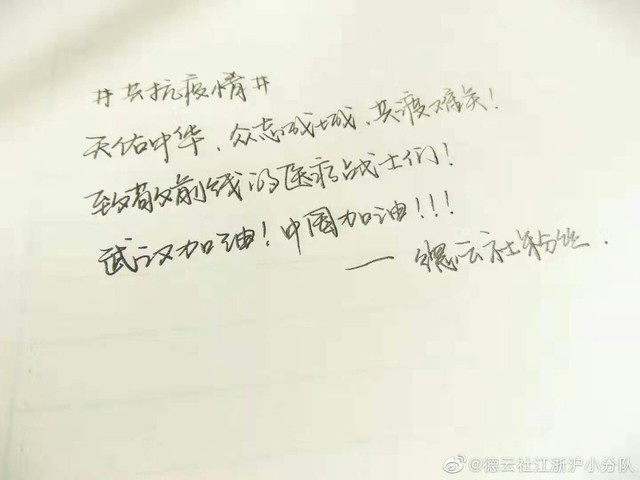 #共抗疫情#
天佑中华，众志成城，共渡难关！
致敬前线的医疗战士们！
武汉加油！中国加油！！！
— 德云社粉丝.
@德云社江浙沪小分队